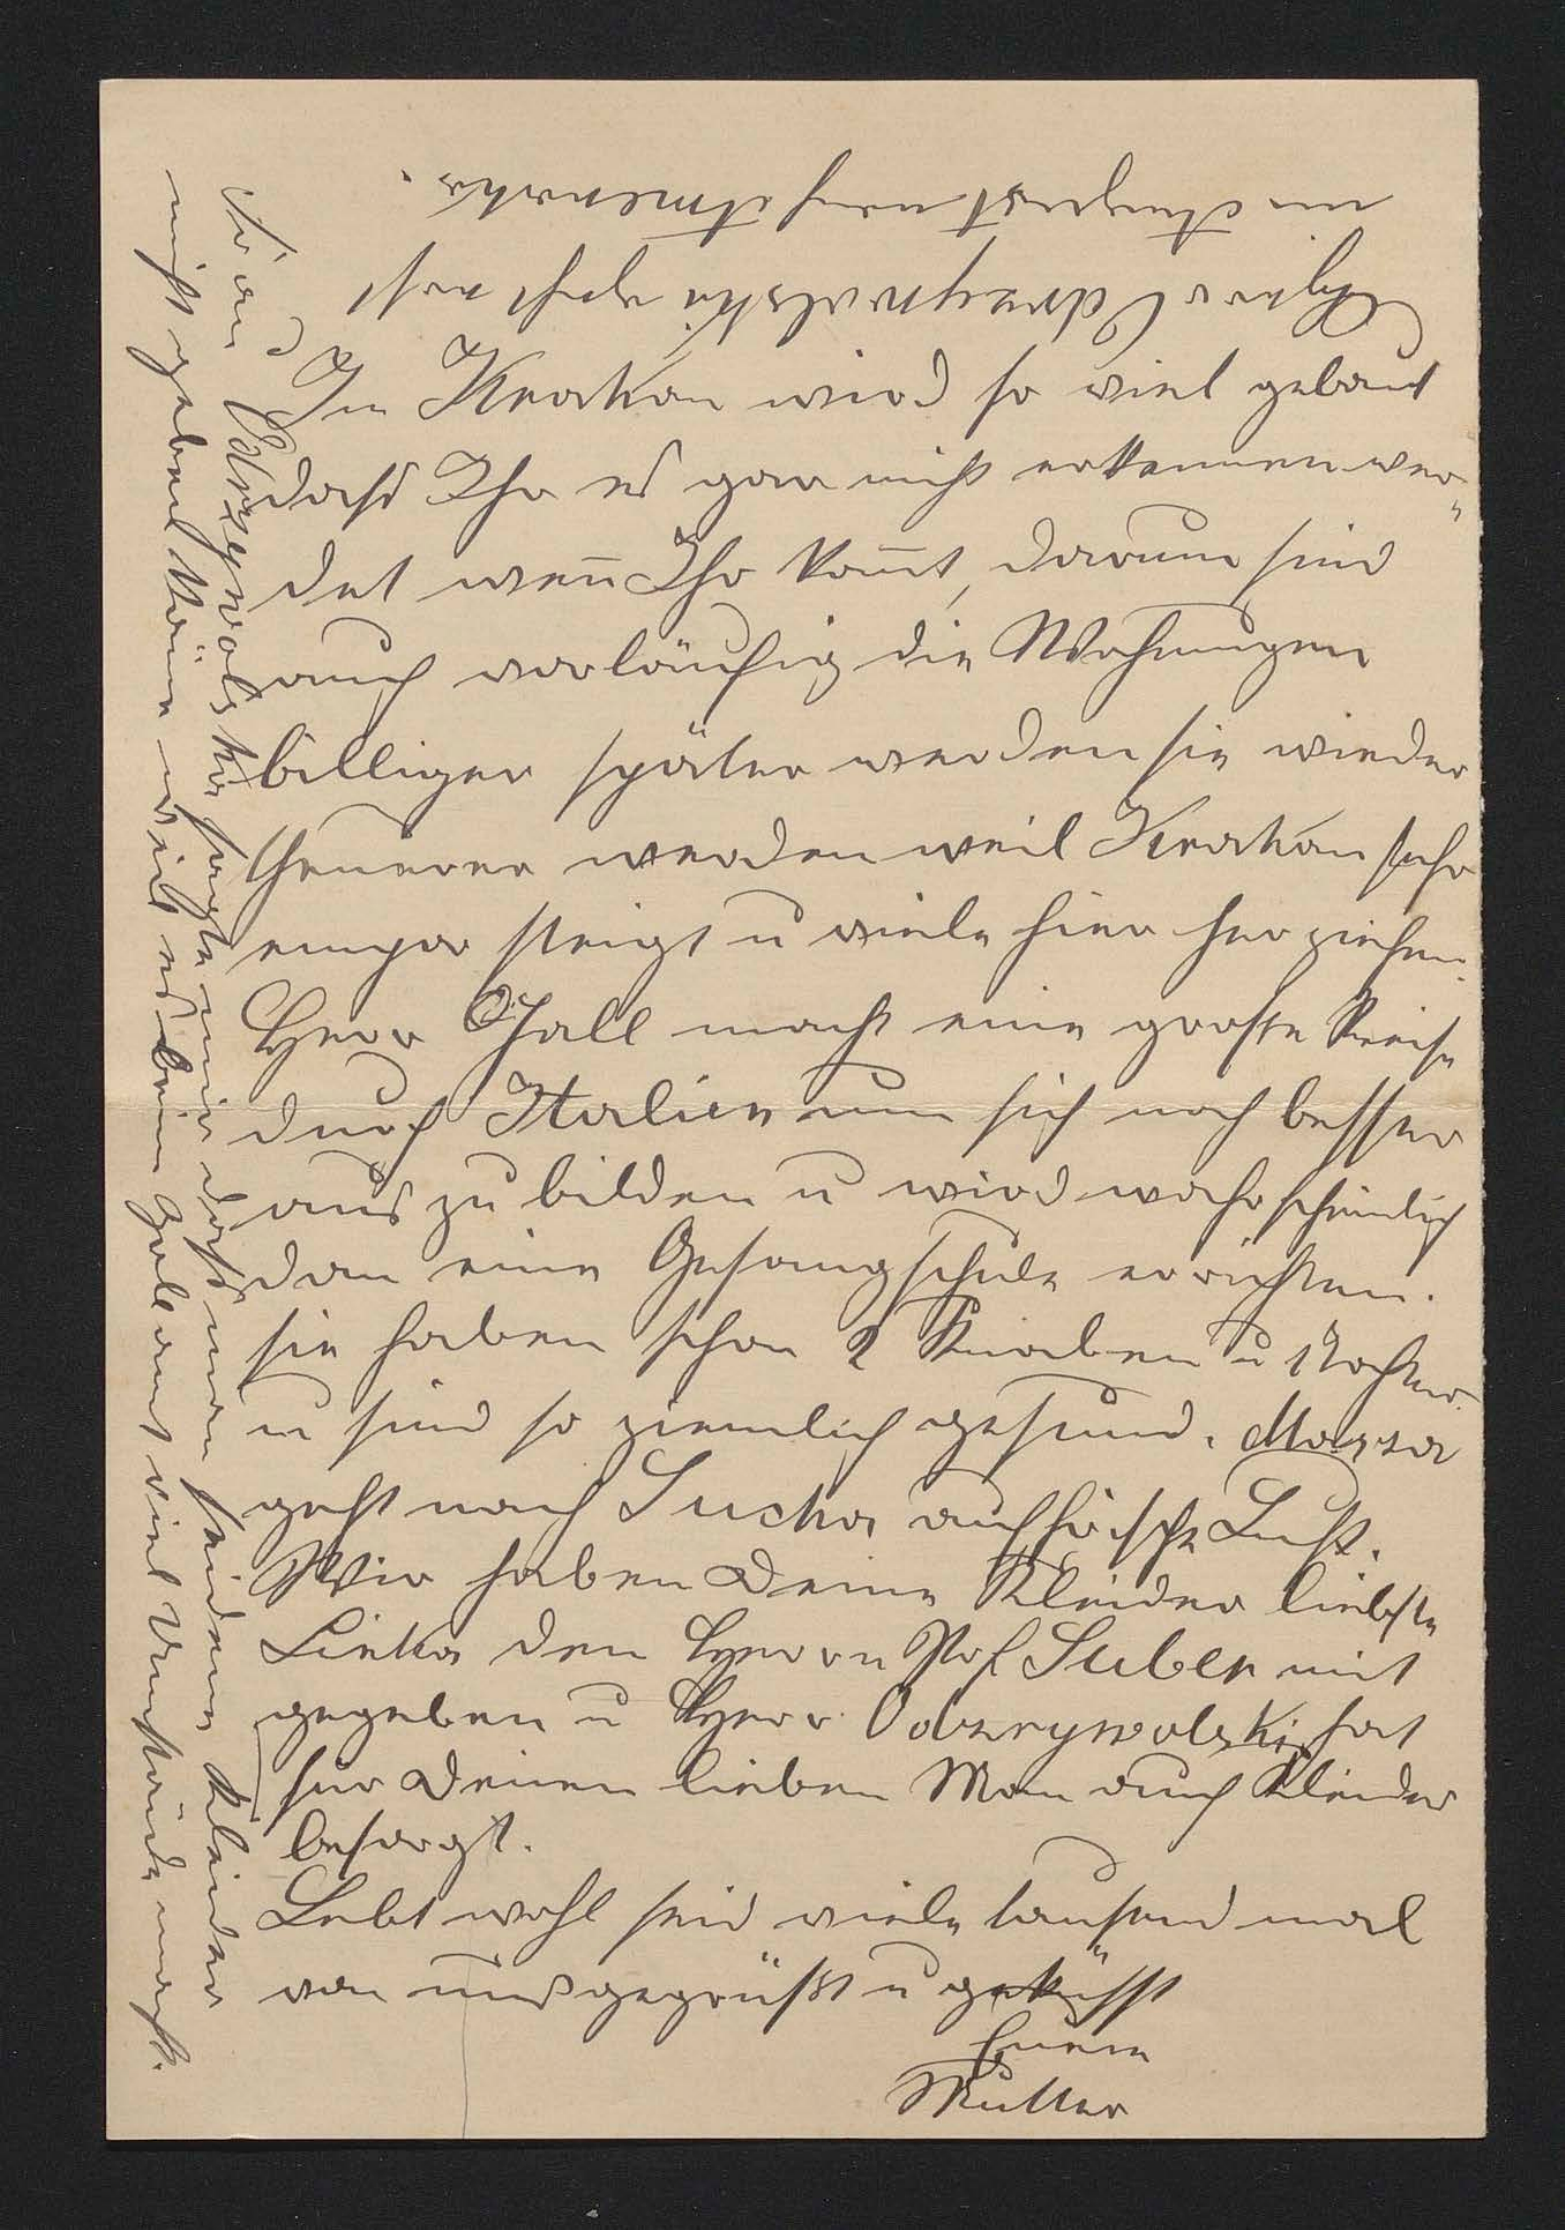 In Krakau wird so viel gebaut
dass Ihr es gar nicht erkennen wer-
det wen̅ Ihr kom̅t, darum sind
auch vorläufig die Wohnungen
billiger später werden sie wieder
theuerer werden weil Krakau sehr
empor steigt u viele hier her ziehen.
Herr Gall macht eine große Reise
durch Italien um sich noch besser
aus zu bilden u wird wahrscheinlich
dan eine Gesangschule errichten.
sie haben schon 2 Knaben u 1 Tochter
u sind so ziemlich gesund. Marya
geht nach Sucha auf frische Luft.
Wir haben Deine Kleider liebste
Linka den Herrn Prof Suber mit
gegeben u Herr Odrzywolski hat
für Deinen lieben Man auch Kleider
besorgt.
Lebt wohl seid viele tausend mal
von uns gegrüßt u geküsst
Euere
Mutter
Frau Odrzywolska sagte mir dass man seidene Kleider
nicht geben kön̅e weil es beim Zollamt viel Umstände macht.
Herr Odrzywolski geht erst
im August nach Amerika.